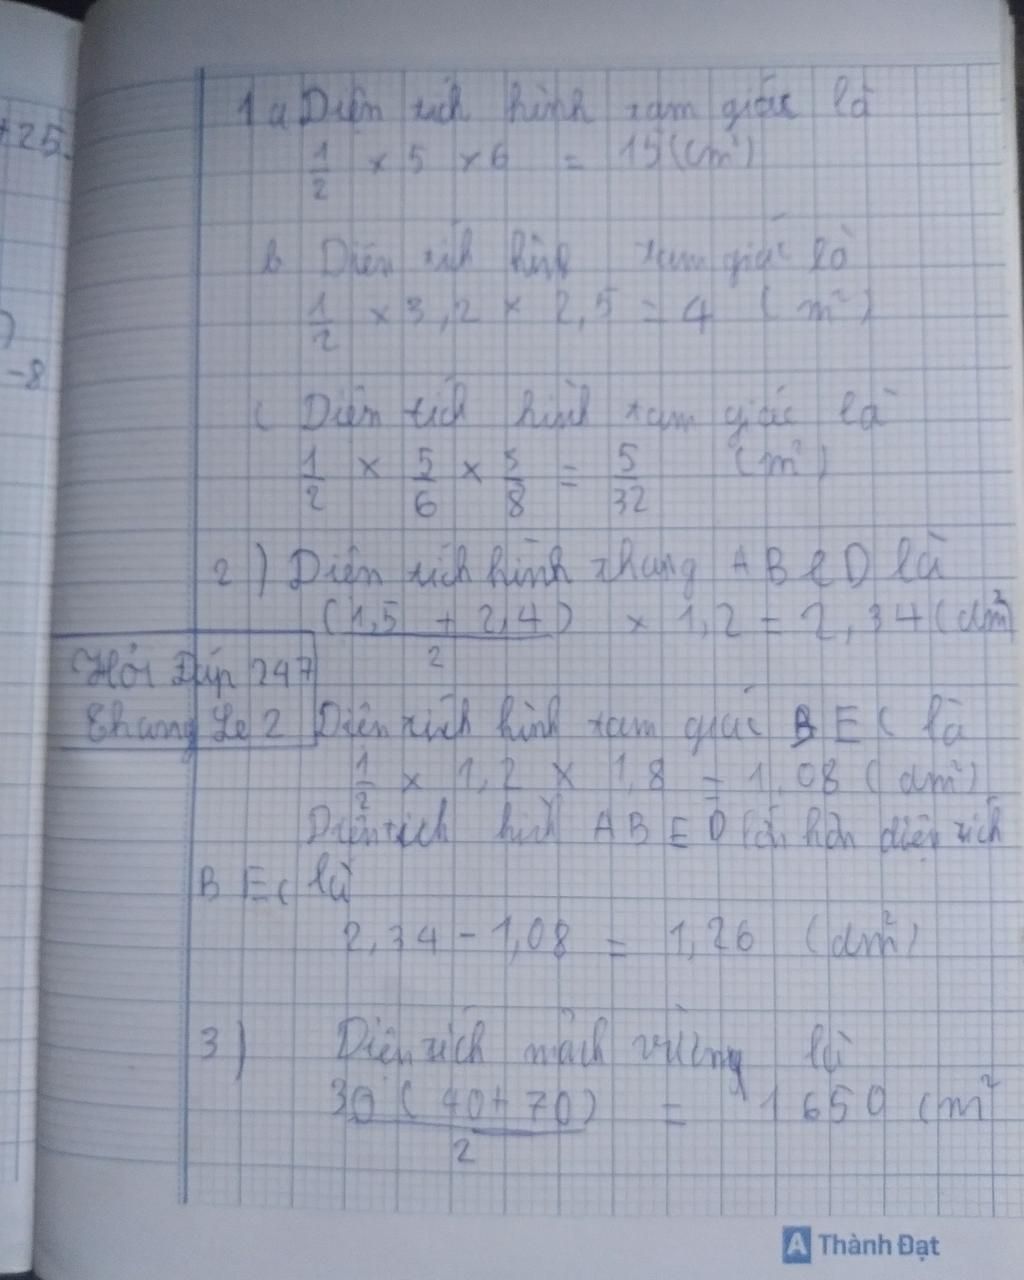 +25.
)
-8
1 a Diện tích hình tam giác là
1/2 × 5 × 6 = 15 (cm²)
b Diện tích hình tam giác là
1/2 × 3,2 × 2,5 = 4 (m²)
c Diện tích hình tam giác là
1/2 × 5/6 × 3/8 = 5/32 (m²)
2) Diện tích hình thang ABED là
(1,5 + 2,4)/2 × 1,2 = 2,34 (dm²)
Hỏi Đáp 247
Khang Le 2
Diện tích hình tam giác BEC là
1/2 × 1,2 × 1,8 = 1,08 (dm²)
Diện tích hình ABED lớn hơn diện tích
BEC là
2,34 - 1,08 = 1,26 (dm²)
3) Diện tích mảnh vườn là
30 (40+70)/2 = 1650 (m²
A Thành Đạt